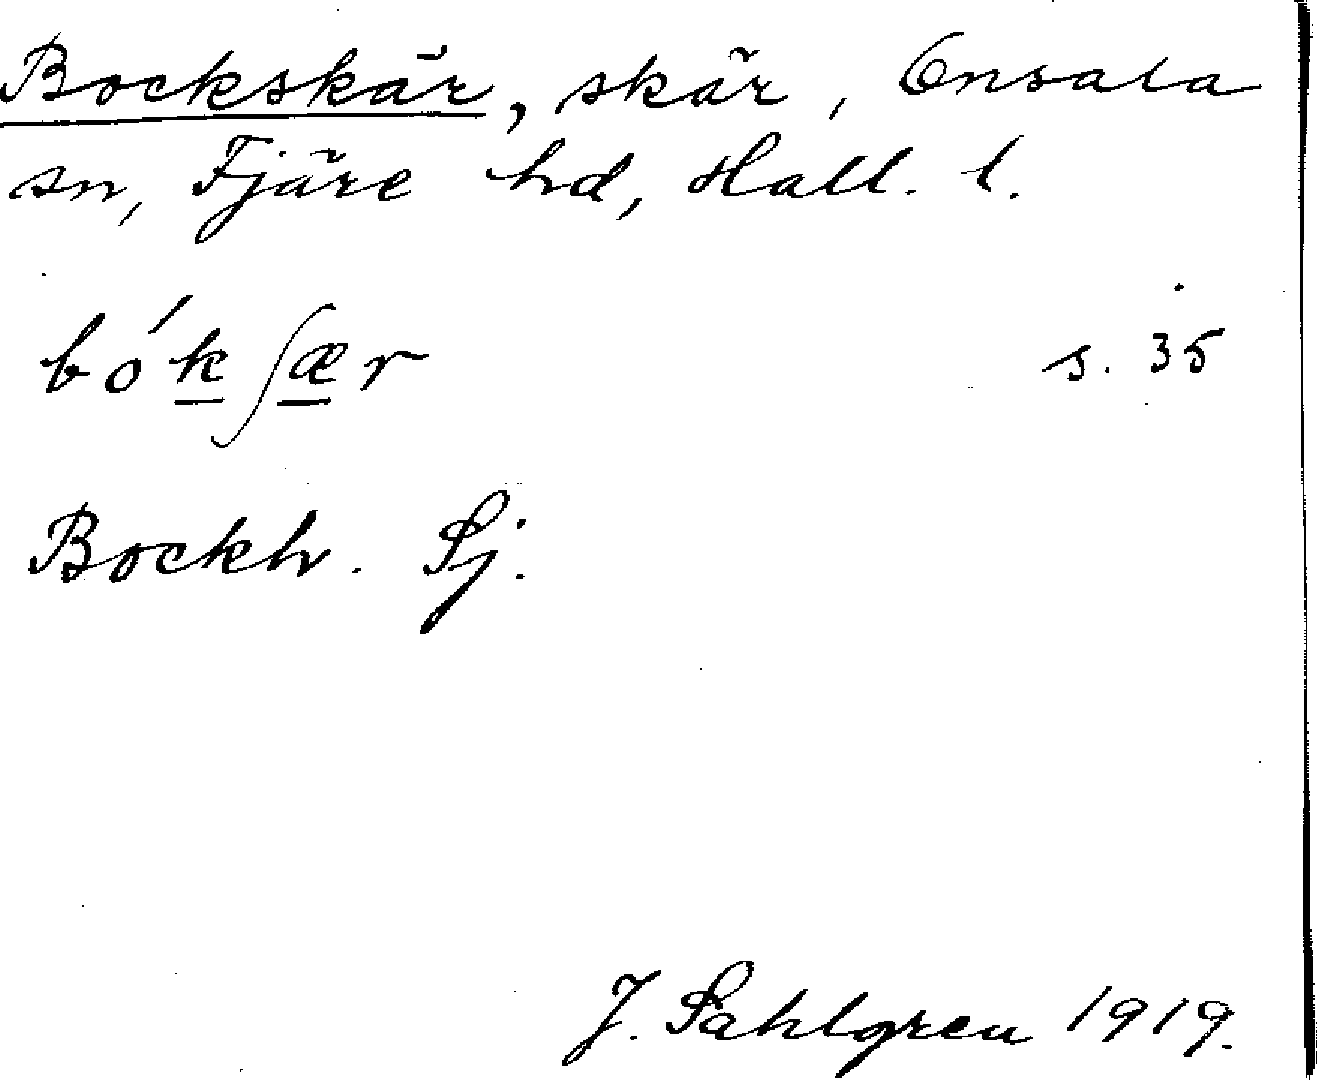 Bockskär, skär, Onsala
sn, Fjäre hd, Hall. l.
bó́k̲ʃæ̲r s. 35
Bockh. Sj.
J. Sahlgren 1919.